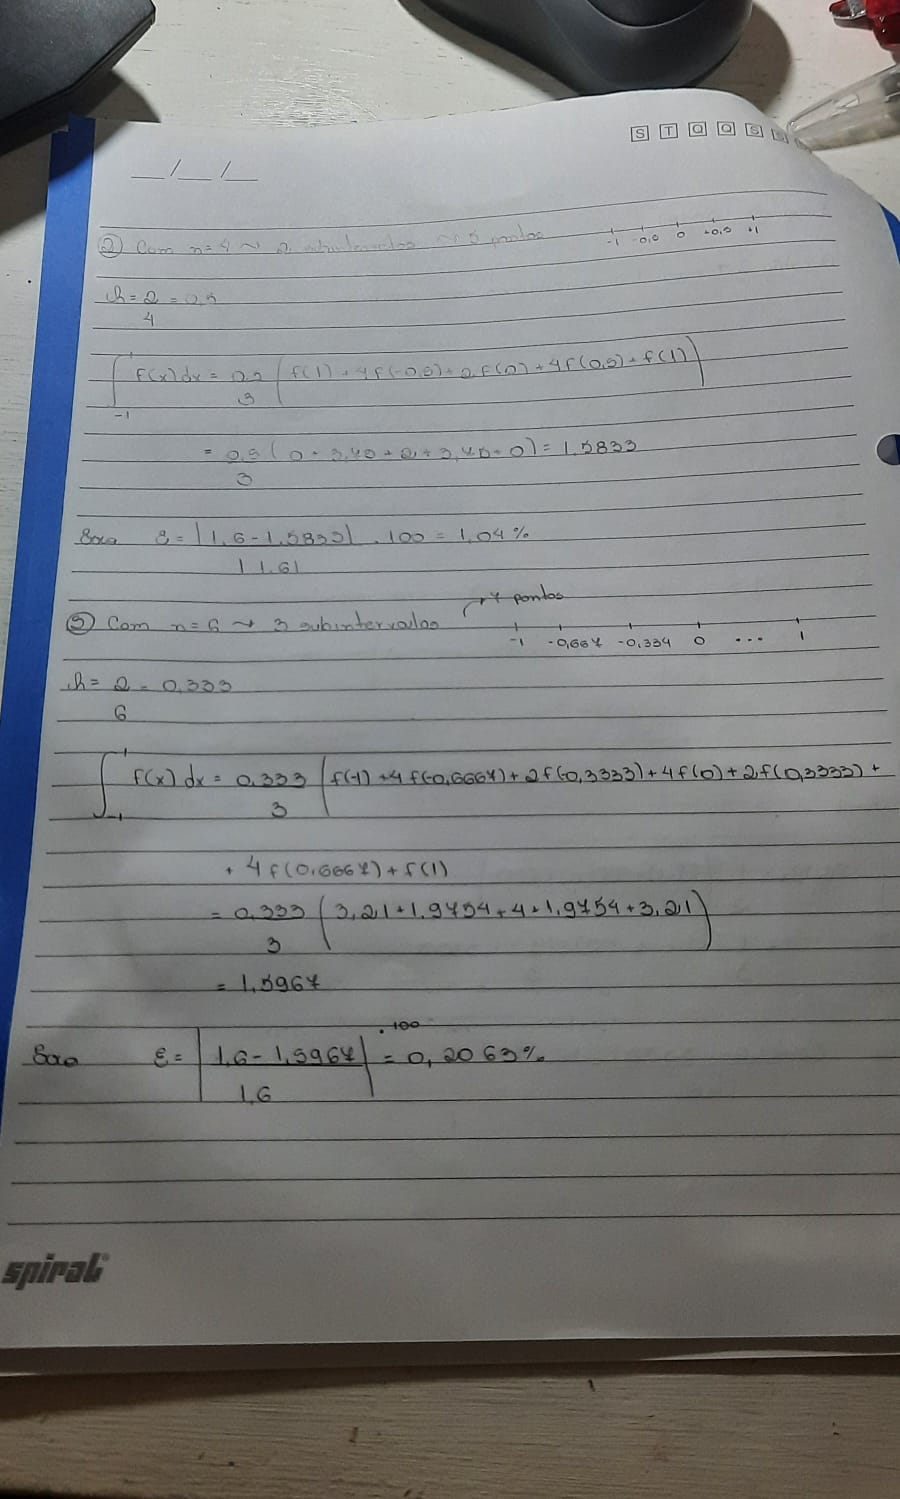 S T Q Q S S
__/__/__
② Com n=4 ~ 2 subintervalos ~ 5 pontos -1 -0,5 0 +0,5 +1
h = 2 = 0,5
4
∫ 1 f(x)dx = 0,5 ( f(1) + 4f(-0,5) + 2f(0) + 4f(0,5) + f(1) )
-1 3
= 0,5 ( 0 + 3,75 + 2 + 3,75 + 0 ) = 1,5833
3
ε = | 1,6 - 1,5833 | . 100 = 1,04%
| 1,6 |
③ Com n=6 ~ 3 subintervalos → 7 pontos
-1 -0,667 -0,334 0 ... 1
h = 2 = 0,333
6
∫ 1 f(x) dx = 0,333 ( f(-1) + 4f(-0,6667) + 2f(-0,3333) + 4f(0) + 2f(0,3333) +
-1 3
+ 4f(0,6667) + f(1)
= 0,333 ( 3,21 + 1,9754 + 4 + 1,9754 + 3,21 )
3
= 1,5967
ε = | 1,6 - 1,5967 | . 100 = 0,2063%
1,6
spiral®